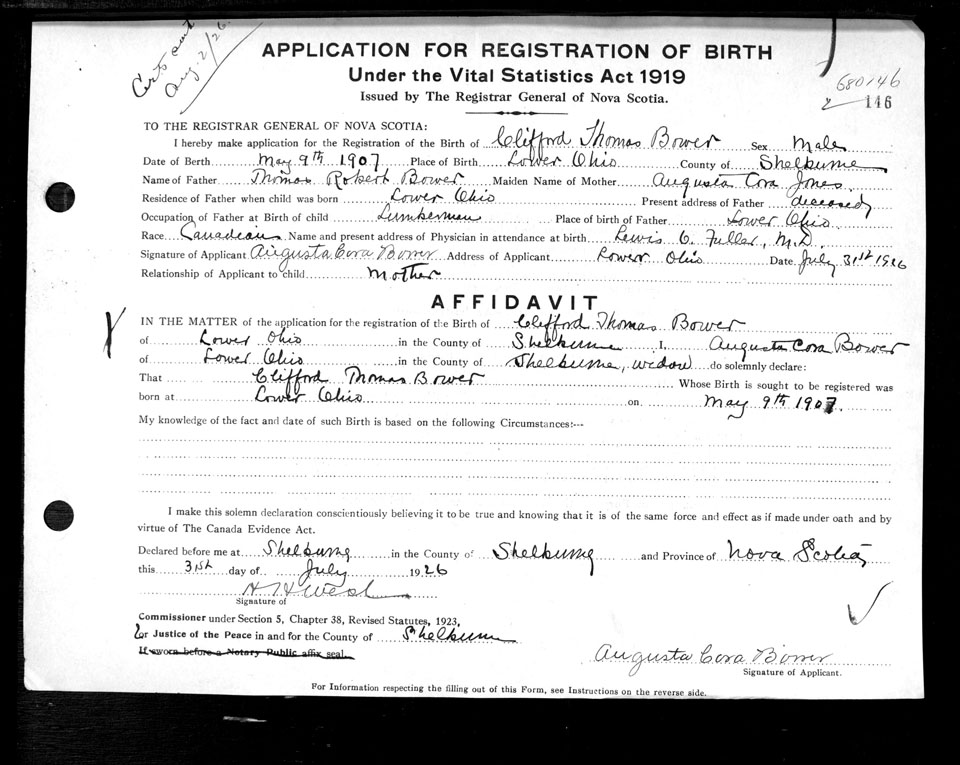 Cert sent
Aug. 2/26.
APPLICATION FOR REGISTRATION OF BIRTH
Under the Vital Statistics Act 1919
Issued by The Registrar General of Nova Scotia.
680146
146
TO THE REGISTRAR GENERAL OF NOVA SCOTIA:
I hereby make application for the Registration of the Birth of Clifford Thomas Bower Sex Male
Date of Berth May 9th 1907 Place of Birth Lower Ohio County of Shelburne
Name of Father Thomas Robert Bower Maiden Name of Mother Augusta Cora Jones
Residence of Father when child was born Lower Ohio Present address of Father deceased
Occupation of Father at Birth of child Lumberman Place of birth of Father Lower Ohio
Race Canadian Name and present address of Physician in attendance at birth Lewis O. Fuller, M.D.
Signature of Applicant Augusta Cora Bower Address of Applicant Lower Ohio Date July 31st 1926
Relationship of Applicant to child Mother
AFFIDAVIT
IN THE MATTER of the application for the registration of the Birth of Clifford Thomas Bower
of Lower Ohio in the County of Shelburne I, Augusta Cora Bower
of Lower Ohio in the County of Shelburne, widow do solemnly declare:
That Clifford Thomas Bower Whose Birth is sought to be registered was
born at Lower Ohio on May 9th 1907.
My knowledge of the fact and date of such Birth is based on the following Circumstances:--
I make this solemn declaration conscientiously believing it to be true and knowing that it is of the same force and effect as if made under oath and by
virtue of The Canada Evidence Act.
Declared before me at Shelburne in the County of Shelburne and Province of Nova Scotia,
this 31st day of July 1926
Signature of
Commissioner under Section 5, Chapter 38, Revised Statutes, 1923,
or Justice of the Peace in and for the County of Shelburne
If sworn before a Notary Public affix seal.
Augusta Cora Bower
Signature of Applicant.
For Information respecting the filling out of this Form, see Instructions on the reverse side.